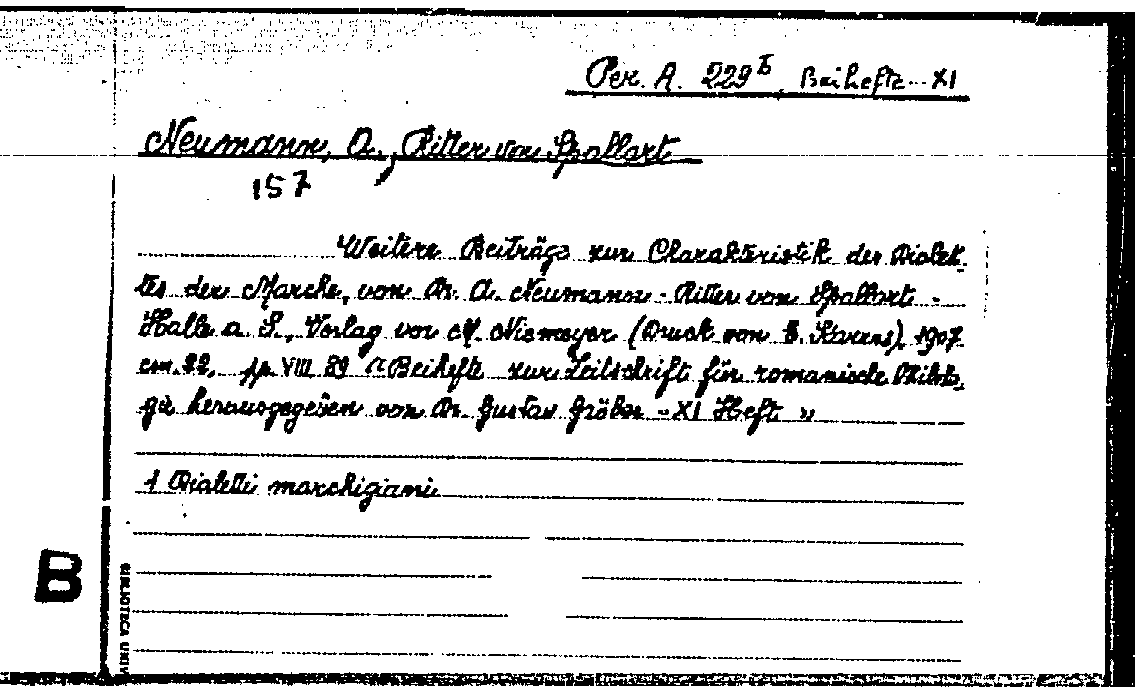 Per. A. 229 I Beihefte XI
Neumann, A., Ritter von Spallart
157
Weitere Beiträge zur Charakteristik des Dialek-
tes der Marche, von Dr. A. Neumann - Ritter von Spallart -
Halle a. S., Verlag von M. Niemeyer (Druck von E. Karras), 1907
cm. 22, pp. VIII 89 "Beihefte zur Zeitschrift für romanische Philolo-
gie herausgegeben von Dr. Gustav Gröber - XI Heft "
1 Dialetti marchigiani
B
BIBLIOTECA UNIV